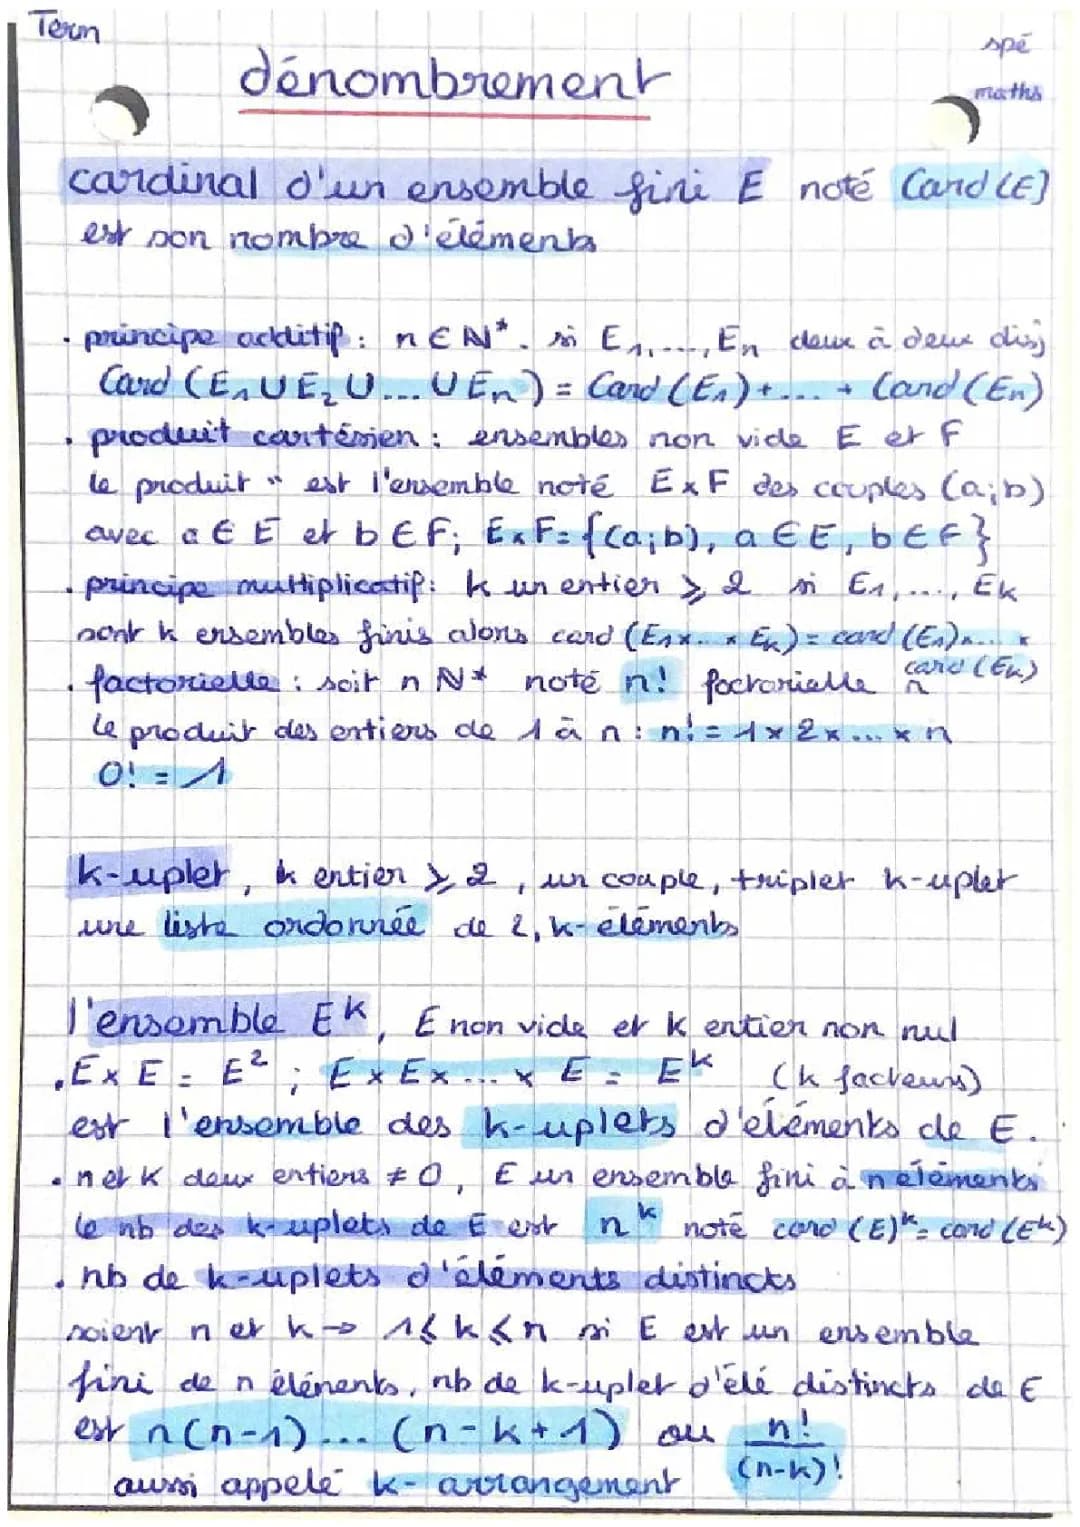 Term
spé
maths
dénombrement
cardinal d'un ensemble fini E noté Card (E)
est son nombre d'éléments
. principe additif : n ∈ N*. si E1,..., En deux à deux disj
Card (E1 U E2 U ... U En) = Card (E1) + ... + Card (En)
. produit cartésien : ensembles non vide E et F
le produit " est l'ensemble noté E x F des couples (a;b)
avec a ∈ E et b ∈ F; E x F = {(a;b), a ∈ E, b ∈ F}
. principe multiplicatif : k un entier ⩾ 2 si E1, ..., Ek
sont k ensembles finis alors card (E1 x ... x Ek) = card (E1) x ... x
card (Ek)
. factorielle : soit n N* noté n! factorielle n
le produit des entiers de 1 à n : n! = 1 x 2 x ... x n
0! = 1
k-uplet, k entier ⩾ 2, un couple, triplet k-uplet
une liste ordonnée de 2, k-éléments
l'ensemble Eᵏ, E non vide et k entier non nul
. E x E = E² ; E x E x ... x E = Eᵏ (k facteurs)
est l'ensemble des k-uplets d'éléments de E.
. n et k deux entiers ≠ 0, E un ensemble fini à n éléments
le nb des k-uplets de E est nᵏ noté card (E)ᵏ = card (Eᵏ)
. nb de k-uplets d'éléments distincts
soient n et k → 1 ⩽ k ⩽ n si E est un ensemble
fini de n éléments, nb de k-uplet d'élé distincts de E
est n(n-1) ... (n-k+1) ou n!/(n-k)!
aussi appelé k-arrangement